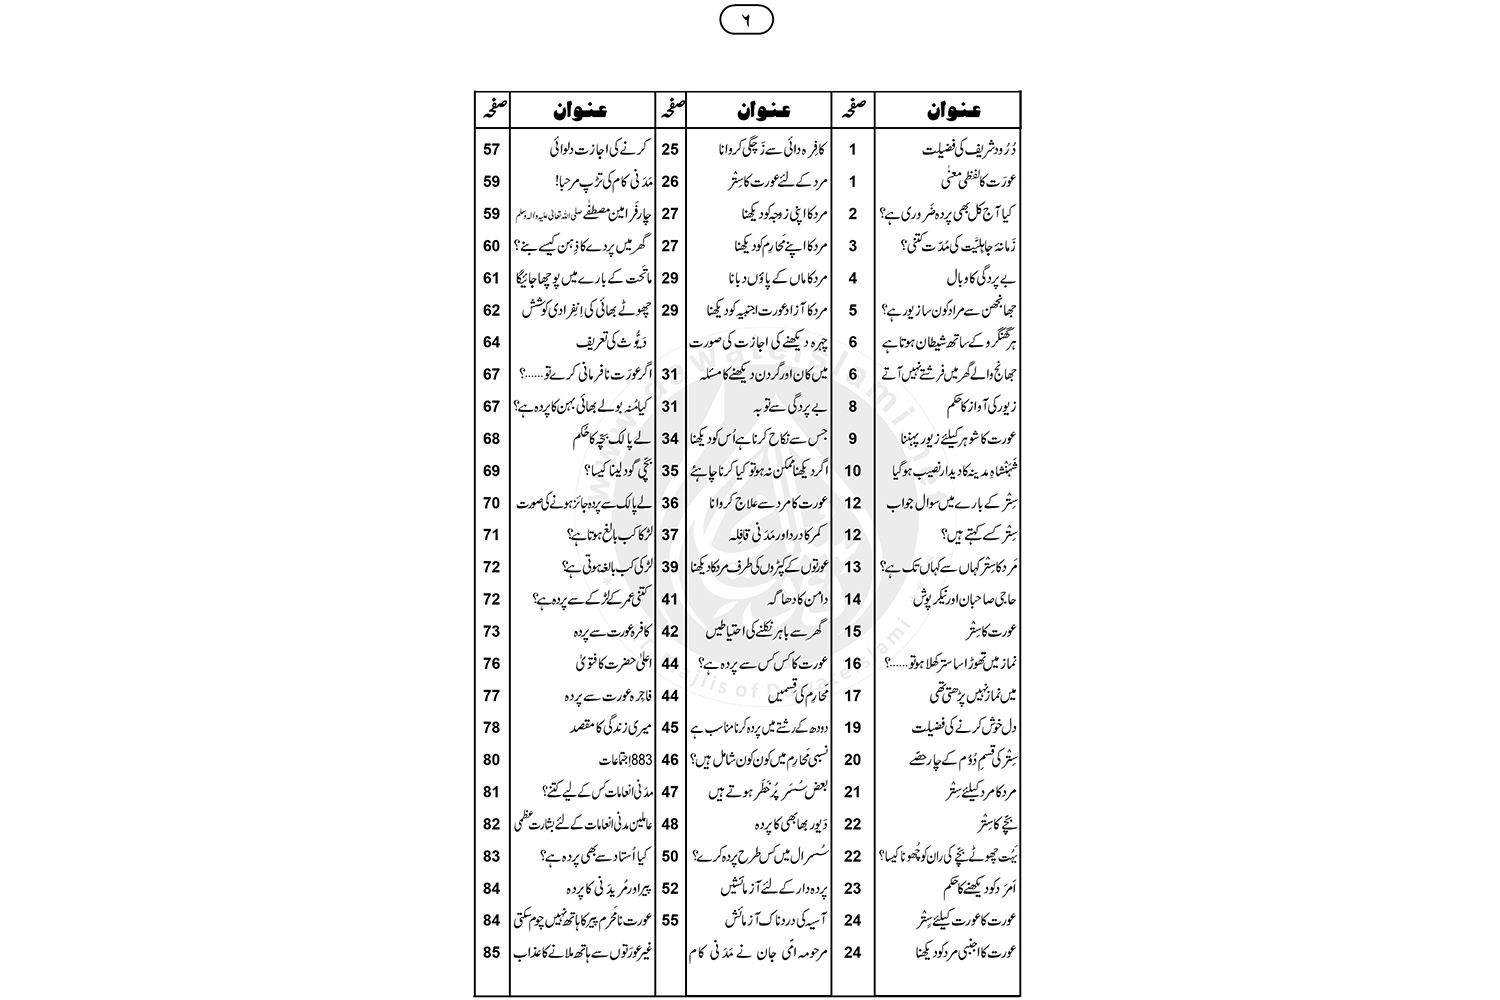 ٦
عنوان صفحہ
دُرُود شریف کی فضیلت 1
عورَت کا لفظی معنٰی 1
کیا آج کل بھی پردہ ضَروری ہے؟ 2
زَمانۂ جاہِلیَّت کی مُدّت کتنی؟ 3
بے پردگی کا وبال 4
جھانجھن سے مراد کون سا زیور ہے؟ 5
ہر گھنگرو کے ساتھ شیطان ہوتا ہے 6
جھانج والے گھر میں فرشتے نہیں آتے 6
زیور کی آواز کا حکم 8
عورت کا شوہر کیلئے زیور پہننا 9
شَہَنْشاہِ مدینہ کا دیدار نصیب ہوگیا 10
سِتْر کے بارے میں سوال جواب 12
سِتْر کسے کہتے ہیں؟ 12
مَرد کا سِتْر کہاں سے کہاں تک ہے؟ 13
حاجی صاحبان اور نیکر پوش 14
عورت کا سِتْر 15
نماز میں تھوڑا سا ستر کھلا ہو تو......؟ 16
میں نماز نہیں پڑھتی تھی 17
دل خوش کرنے کی فضیلت 19
سِتْر کی قسمِ دُوُم کے چار حصّے 20
مرد کا مرد کیلئے سِتْر 21
بچّے کا سِتْر 22
بَہُت چھوٹے بچّے کی ران کو چُھونا کیسا؟ 22
اَمرَد کو دیکھنے کا حکم 23
عورت کا عورت کیلئے سِتْر 24
عورت کا اجنبی مرد کو دیکھنا 24
عنوان صفحہ
کافِرہ دائی سے زَچگی کروانا 25
مرد کے لئے عورت کا سِتْر 26
مرد کا اپنی زوجہ کو دیکھنا 27
مرد کا اپنے مَحارِم کو دیکھنا 27
مرد کا ماں کے پاؤں دبانا 29
مرد کا آزاد عورت اجنبیہ کو دیکھنا 29
چہرہ دیکھنے کی اجازت کی صورت
میں کان اور گردن دیکھنے کا مسئلہ 31
بے پردگی سے توبہ 31
جس سے نکاح کرنا ہے اُس کو دیکھنا 34
اگر دیکھنا ممکن نہ ہو تو کیا کرنا چاہئے 35
عورت کا مرد سے علاج کروانا 36
کمر کا درد اور مَدَنی قافِلہ 37
عورتوں کے کپڑوں کی طرف مرد کا دیکھنا 39
دامن کا دھاگہ 41
گھر سے باہر نکلنے کی احتیاطیں 42
عورت کا کس کس سے پردہ ہے؟ 44
مَحارِم کی قسمیں 44
دودھ کے رشتے میں پردہ کرنا مناسب ہے 45
نسبی مَحارِم میں کون کون شامل ہیں؟ 46
بعض سُسَر پُر خَطَر ہوتے ہیں 47
دَیور بھابھی کا پردہ 48
سُسرال میں کس طرح پردہ کرے؟ 50
پردہ دار کے لئے آزمائشیں 52
آسیہ کی دردناک آزمائش 55
مرحومہ امّی جان نے مَدَنی کام
عنوان صفحہ
کرنے کی اجازت دلوائی 57
مَدَنی کام کی تڑپ مرحبا! 59
چار فَرامینِ مصطَفٰے صلی اللہ تعالیٰ علیہ والہ وسلم 59
گھر میں پردے کا ذِہن کیسے بنے؟ 60
ماتَحت کے بارے میں پوچھا جائیگا 61
چھوٹے بھائی کی اِنفِرادی کوشش 62
دَیُّوث کی تعریف 64
اگر عورَت نافرمانی کرے تو......؟ 67
کیا مُنہ بولے بھائی بہن کا پردہ ہے؟ 67
لے پالک بچّہ کا حُکْم 68
بچّی گود لینا کیسا؟ 69
لے پالک سے پردہ جائز ہونے کی صورت 70
لڑکا کب بالغ ہوتا ہے؟ 71
لڑکی کب بالغہ ہوتی ہے؟ 72
کتنی عمر کے لڑکے سے پردہ ہے؟ 72
کافرہ عورت سے پردہ 73
اعلیٰ حضرت کا فتویٰ 76
فاجِرہ عورت سے پردہ 77
میری زندگی کا مقصد 78
883 اِجتماعات 80
مدَنی انعامات کس کے لیے کتنے؟ 81
عاملینِ مدنی انعامات کے لئے بشارتِ عظمی 82
کیا اُستاد سے بھی پردہ ہے؟ 83
پیر اور مُریدَنی کا پردہ 84
عورت نامَحرم پیر کا ہاتھ نہیں چوم سکتی 84
غیر عورَتوں سے ہاتھ ملانے کا عذاب 85
www.dawateislami.net
I.T Majlis of DawateIslami